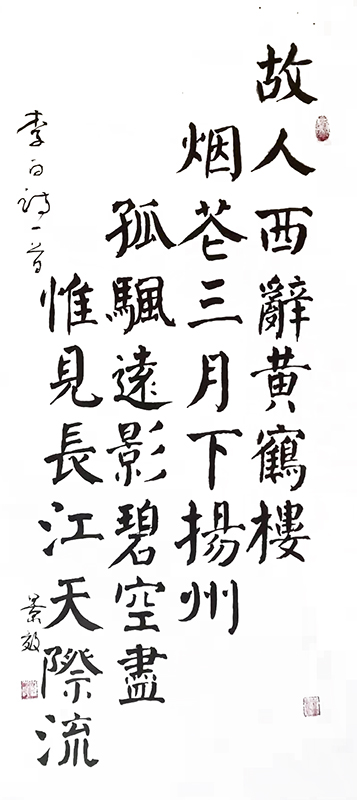 故人西辭黄鶴樓
烟花三月下揚州
孤颿遠影碧空盡
惟見長江天際流
李白詩一首
景效